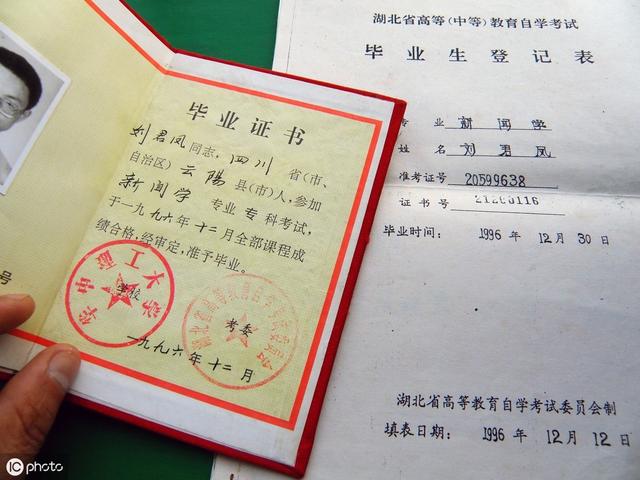 毕业证书
刘君凤同志，四川 省（市、
自治区）云陽 县（市）人，参加
新闻学 专业 专 科考试，
于一九九六年十二月全部课程成
绩合格，经审定，准予毕业。
学校
考委
一九九六年十二月
号
湖北省高等（中等）教育自学考试
毕业生登记表
专业 新闻学
姓名 刘君凤
准考证号 20599638
证书号
毕业时间： 1996 年 12 月 30 日
湖北省高等教育自学考试委员会制
填表日期： 1996 年 12 月 12 日
iC photo